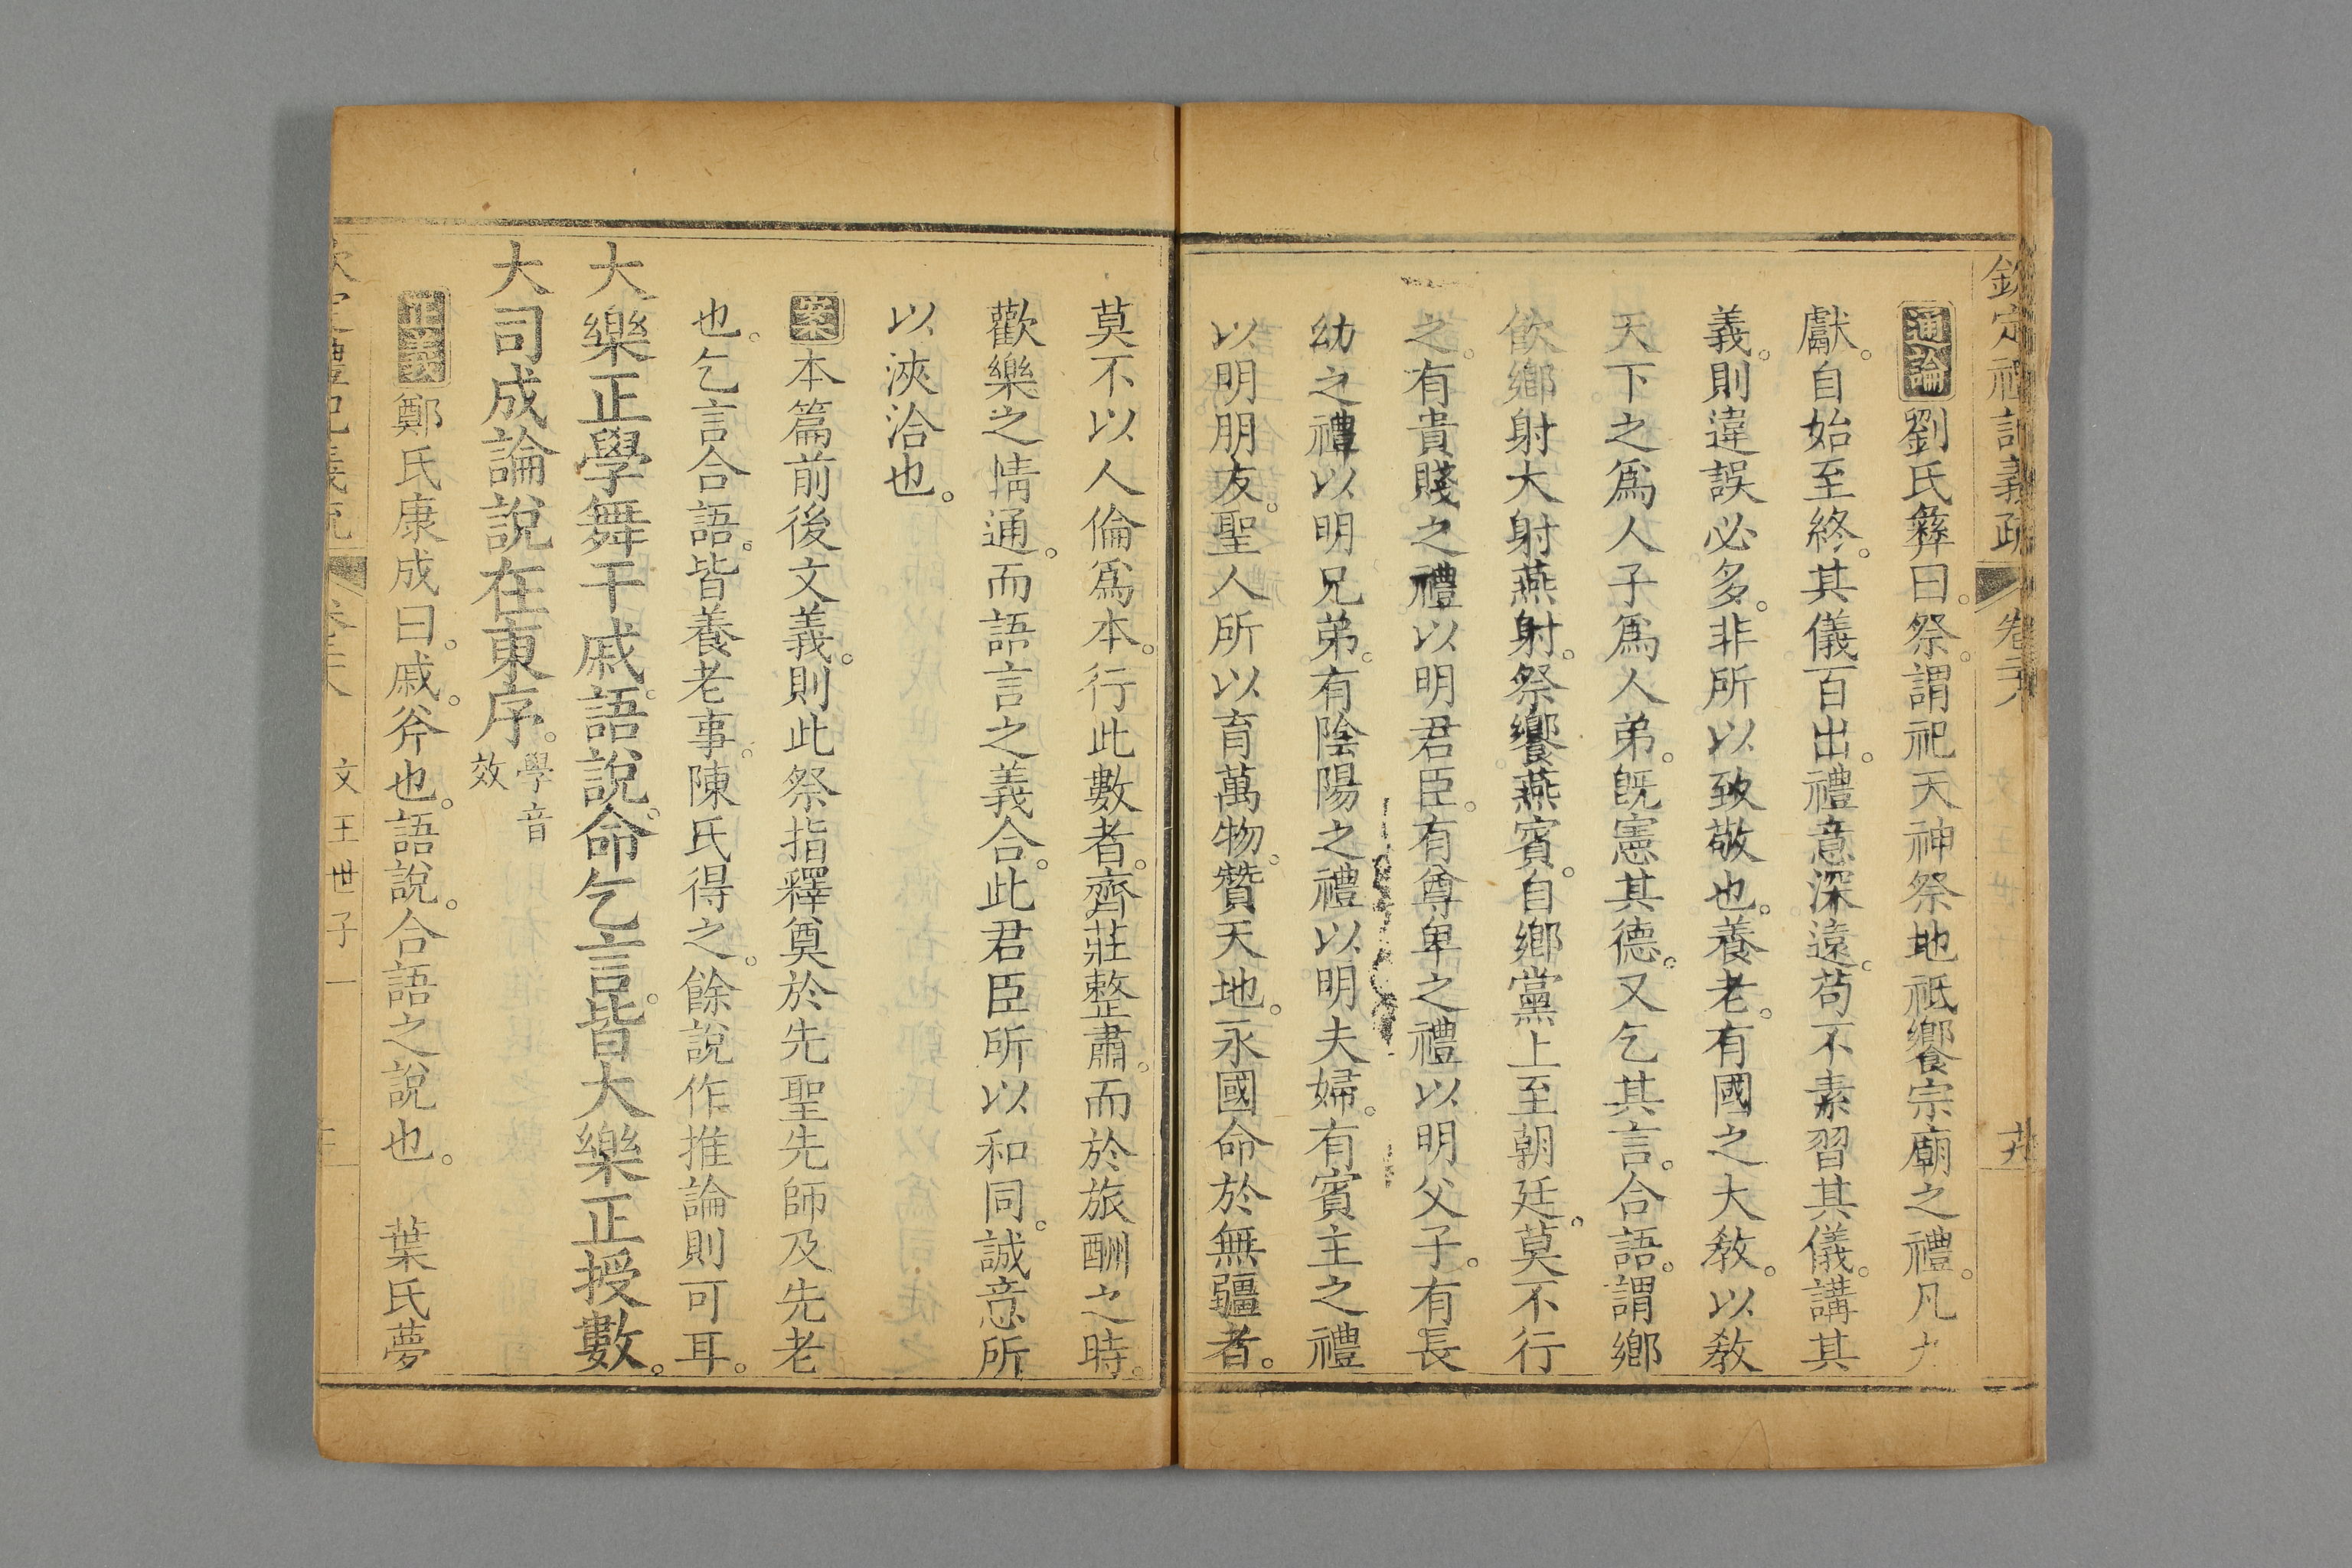 欽定禮記義疏 卷二十八 廿
通論劉氏彝曰。祭。謂祀天神祭地祇饗宗廟之禮。凡九
獻。自始至終。其儀百出。禮意深遠。苟不素習其儀。講其
義。則違誤必多。非所以致敬也。養老。有國之大教。以教
天下之爲人子爲人弟。旣憲其德。又乞其言。合語。謂鄉
飲鄉射大射燕射。祭饗燕賓。自鄉黨上至朝廷。莫不行
之。有貴賤之禮以明君臣。有尊卑之禮以明父子。有長
幼之禮以明兄弟。有陰陽之禮以明夫婦。有賓主之禮
以明朋友。聖人所以育萬物。贊天地。永國命於無疆者。
莫不以人倫爲本。行此數者。齊莊整肅。而於旅酬之時。
歡樂之情通。而語言之義合。此君臣所以和同。誠意所
以浹洽也。
案本篇前後文義。則此祭指釋奠於先聖先師及先老
也。乞言合語。皆養老事。陳氏得之。餘說作推論則可耳。
大樂正學舞干戚。語說。命乞言。皆大樂正授數。
大司成論說在東序。學音
效
正義鄭氏康成曰。戚。斧也。語說。合語之說也。 葉氏夢
文王世子一